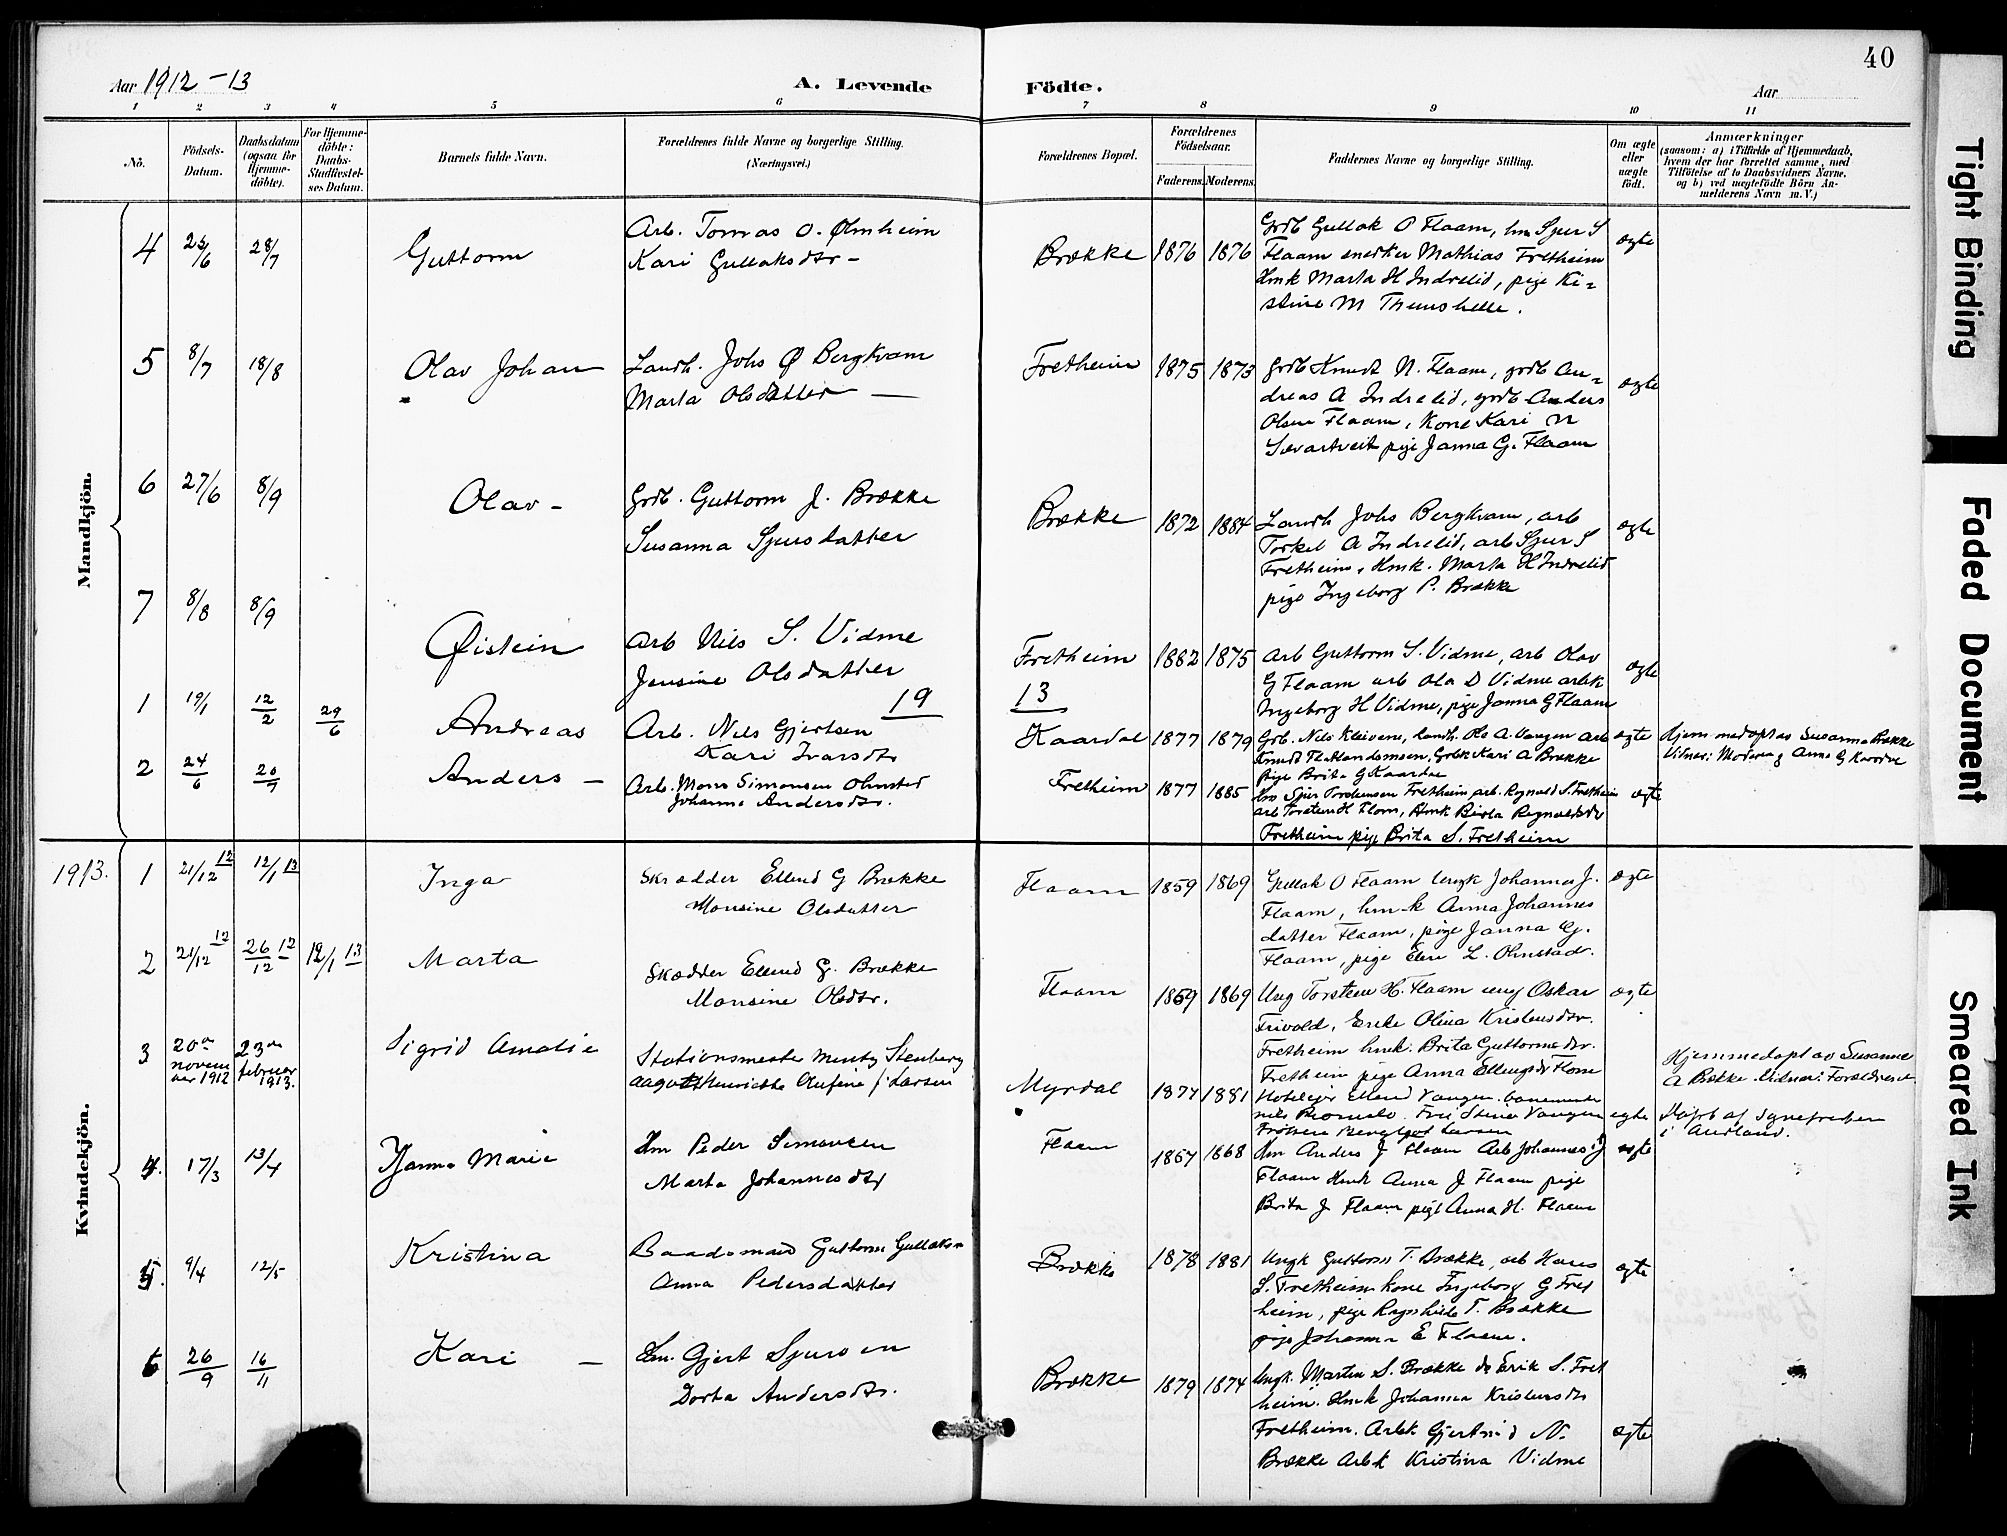 40
Aar 1912-13
A. Levende Födte.
Aar
1 2 3 4 5 6 7 8 9 10 11
No.
Födsels-Datum.
Daabsdatum (ogsaa for Hjemme-döbte).
For Hjemme-döbte: Daabs-Stadfæstel-ses Datum.
Barnets fulde Navn.
Forældrenes fulde Navne og borgerlige Stilling. (Næringsvei.)
Forældrenes Bopæl.
Forældrenes Födselsaar.
Faderens. Moderens.
Faddernes Navne og borgerlige Stilling.
Om ægte eller uægte födt.
Anmærkninger
(saasom: a) i Tilfælde af Hjemmedaab,
hvem der har forrettet samme, med
Tilföielse af to Daabsvidners Navne,
og b) ved uægtefödte Börn An-
melderens Navn m.V.)
Mandkjön.
4 25/6 28/7 Guttorm
Arb. Tomas O. Ølmheim
Kari Gullaksdtr -
Brække 1876 1876
Grdb Gullak O Flaam, hm Sjur S
Flaam snedker Mathias Fretheim
Hmk Marta H Indrelid, pige Ki-
stine M
ægte
5 8/7 18/8 Olav Johan
Landh. Johs Ø Bergkvam
Marta Olsdatter
Fretheim 1875 1873
Grdb Knudt N. Flaam, grdb An-
dreas A Indrelid, grdb Anders
Olsen Flaam, Kone Kari N
pige Janna G. Flaam
ægte
6 27/6 8/9 Olav -
Grdb. Guttorm J. Brække
Susanna Sjursdatter
Brække 1872 1884
Landh Johs Bergkvam, arb
Torkel A Indrelid, arb Sjur S
Fretheim, Hmk. Marta H Indrelid
pige Ingeborg P. Brække
ægte
7 8/8 8/9 Øistein
Arb Nils S. Vidme
Jensine Olsdatter
Fretheim 1882 1875
Arb Guttorm S. Vidme, arb Olav
G Flaam arb Ola D Vidme arbk
Ingeborg H Vidme, pige Janna G Flaam
ægte
19 13
1 19/1 12/2 29/6 Andreas
Arb. Nils Gjertsen
Kari Ivarsdtr
Kaardal 1877 1879
Grb. Nils Kleivene, landh. Ols A. Vangen arb
Knudt Grbk Kari A Brække
pige Brita G Kaardal
ægte
Hjemmedøpt av Susanna Brække
Vidner: Moderen og Anna G Kaardal
2 24/6 20/7 Anders -
Arb. Mons Simonsen Ølmsted
Johanna Andersdtr.
Fretheim 1877 1885
hm Sjur Torstensen Fretheim arb. Ragnvald S. Fretheim
arb Torstein H Flom, Hmk Birta Ragnvaldsdtr
Fretheim pige Brita S. Fretheim
ægte
1913.
Kvindekjön.
1 21/12 12 12/1 13 Inga
Skrædder Ellend G Brække
Monsine Olsdatter
Flaam 1859 1869
Gullak O Flaam Ungk Johannes J.
Flaam, hmk Anna Johannes
datter Flaam, pige Janna G.
Flaam, pige Eline L. Ølmstad.
ægte
2 21/12 12 26/12 12 12/1 13 Marta
Skædder Ellend G. Brække
Monsine Olsdtr.
Flaam 1859 1869
Ung Torstein H. Flaam ung Oskar
Frivold, Enke Olina Kristensdtr.
Fretheim hmk. Brita Guttormsdtr.
Fretheim pige Anna Ellingsdtr Flom
ægte
Hjemmedøpt av Susanne
A Brække. Vidner: Forældrene
3 20de november 1912 23de februar 1913. Sigrid Amalie
Stationsmester Stenberg
Aagot Henriette f. Larsen
Myrdal 1877 1881
Hoteleier Ellend Vangen. banemester
Nils Fru Stina Vangen
Frøken Larsen
egte
Døpt af Sogneprsten
i Aurland.
4. 17/3 13/4 Hanna Marie
Hm Peder Simonsen
Marta Johannesdtr
Flaam 1867 1868
Hm Anders J Flaam Arb Johannes J
Flaam Hmk Anna J Flaam pige
Brita J Flaam pige Anna H. Flaam
ægte
5. 9/4 12/5 Kristina
Baadsmand Guttorm Gullaksen
Anna Pedersdatter
Brække 1878 1881
Ungk Guttorm T. Brække, arb Hans
S. Fretheim kone Ingeborg G Fret
heim, pige Ragnhilda T. Brække
pige Johanna E Flaam.
ægte
6 26/9 16/11 Kari -
Hm. Gjert Sjursen
Dorta Andersdtr.
Brække 1879 1874
Ungk. Martin S. Brække do Erik S. Fret
heim. Hmk Johanna Kristensdtr
Fretheim. Arbk. Gjertrud N.
Brække Arbk Kristina Vidme
ægte
Tight Binding
Faded Document
Smeared Ink